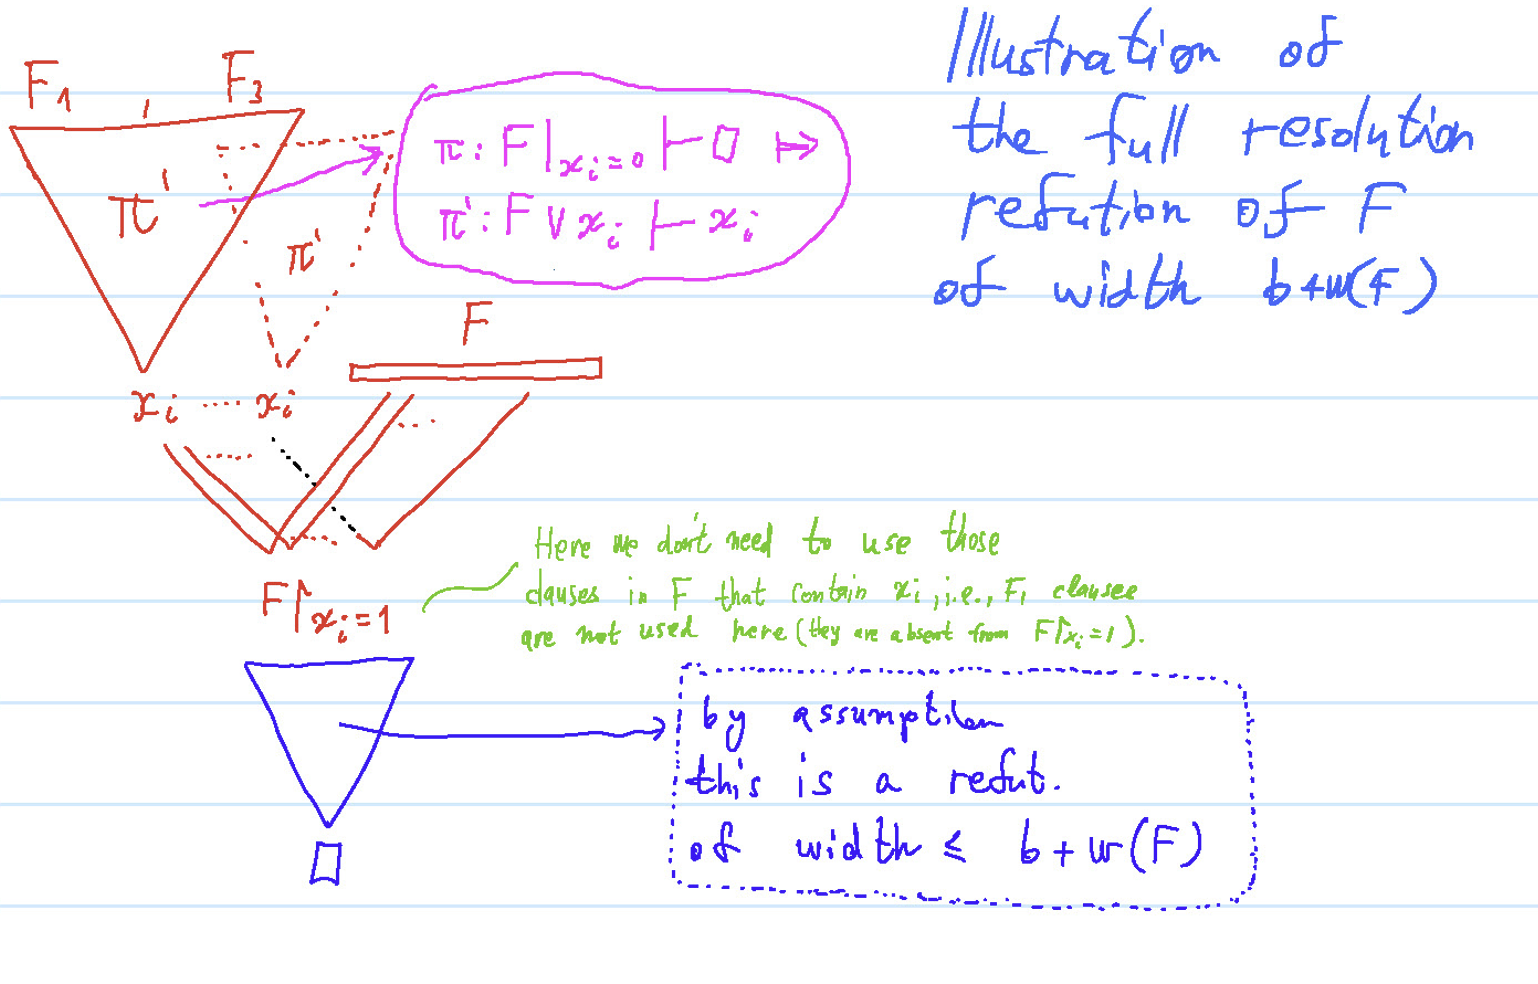 Illustration of
the full resolution
refution of F
of width b+w(F)
F₁ F₃
π' π'
π: F|xᵢ=0 ⊢ □ ↦
π': F ∨ xᵢ ⊢ xᵢ
F
xᵢ ..... xᵢ
Here we don't need to use those
clauses in F that contain xᵢ, i.e., F₁ clauses
are not used here (they are absent from F↾xᵢ=1).
F↾xᵢ=1
by assumption
this is a refut.
of width ≤ b+w(F)
□